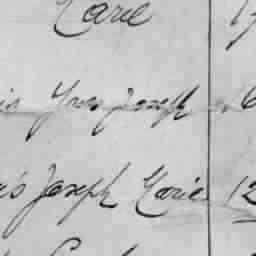 Marie 17
is Yves Joseph 6
is Joseph Marie 12